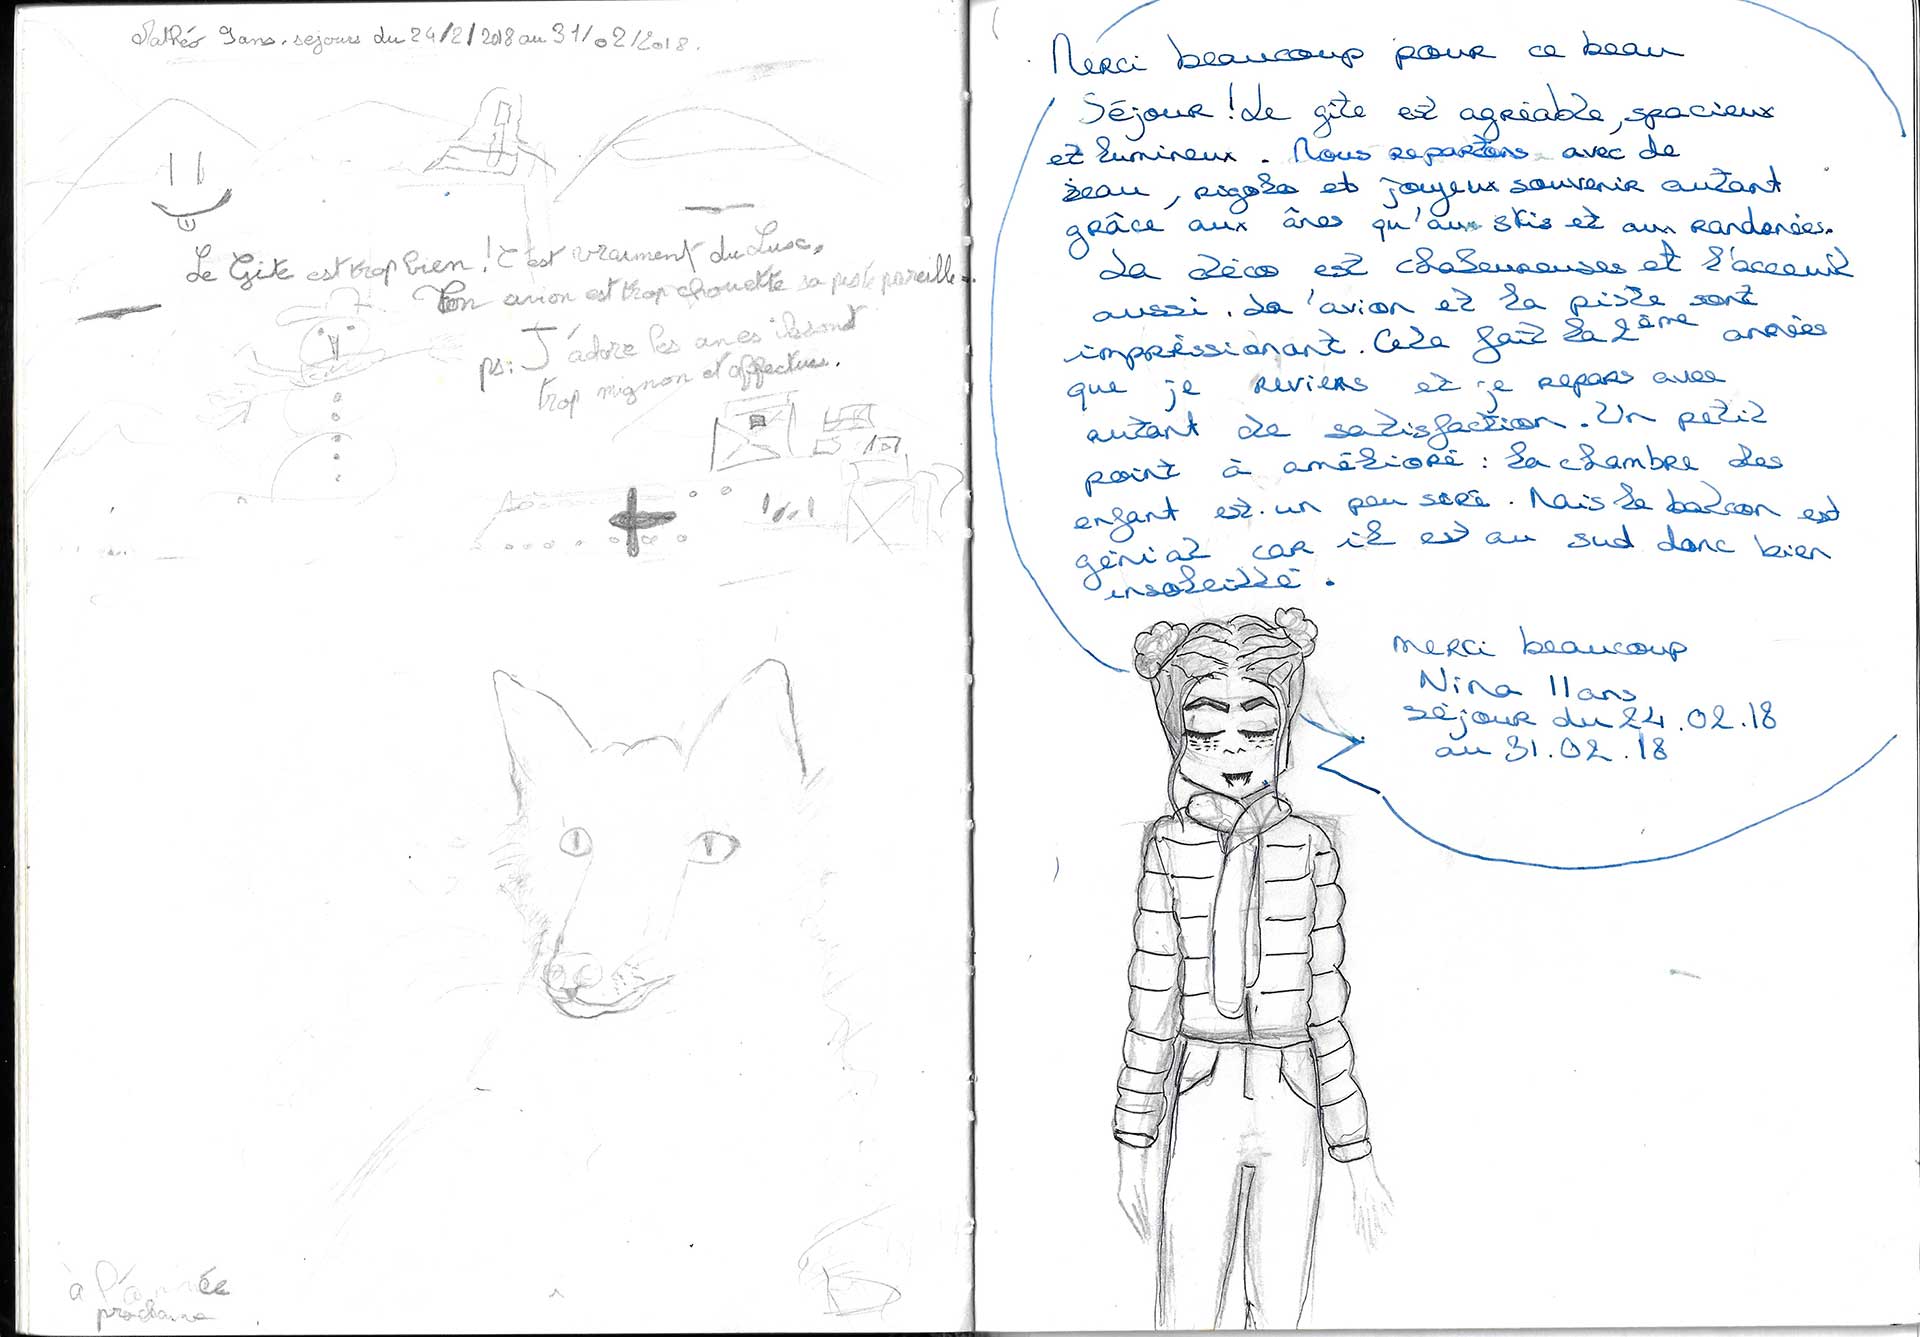 Mathéo 9ans. sejours du 24/2/2018 au 31/02/2018.
Le Gite est trop bien ! C'est vraiment du Luxe,
Ton avion est trop chouette sa piste pareille
ps: J'adore les anes ils sont
trop mignon et affectus.
à l'année
prochaine
Merci beaucoup pour ce beau
Séjour ! Le gîte est agréable, spacieux
et lumineux. Nous repartons avec de
beau, rigolo et joyeux souvenir autant
grâce aux ânes qu'aux skis et aux randonées.
La déco est chaleureuses et l'acceuil
aussi. La l'avion et la piste sont
impréssionant. Cela fait la 2ème années
que je reviens et je repars avec
autant de satisfaction. Un petit
point à amélioré : la chambre des
enfant est un peu séré. Mais le balcon est
génial car il est au sud donc bien
insoleillé.
merci beaucoup
Nina 11ans
séjour du 24.02.18
au 31.02.18